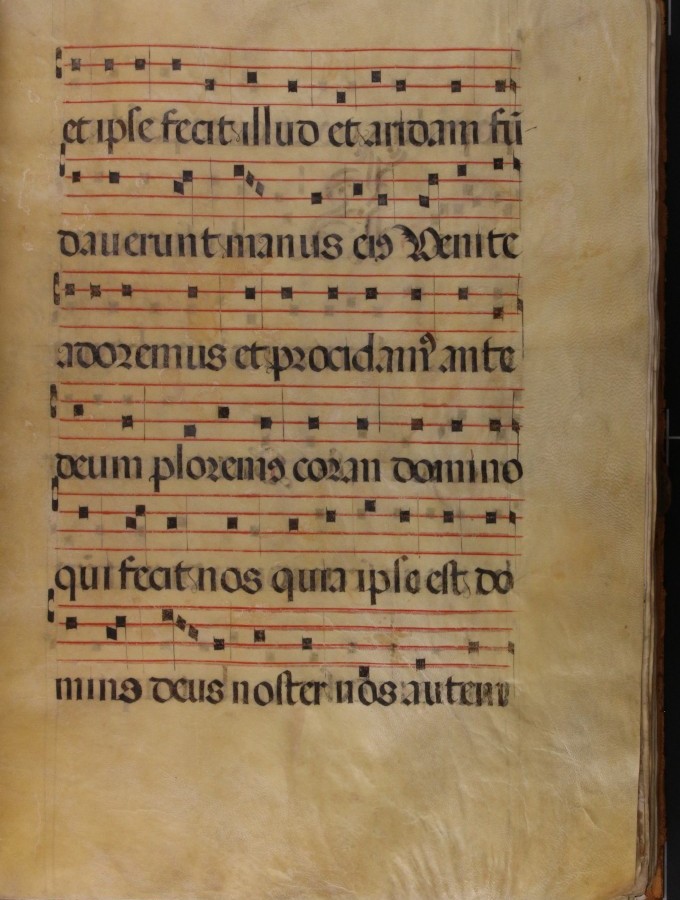 et ipse fecit illud et aridam fū
dauerunt manus eiꝰ Uenite
adoremus et procidamꝰ ante
deum ploremꝰ coran domino
qui fecit nos quia ipse est do
minꝰ deus noster nos autem